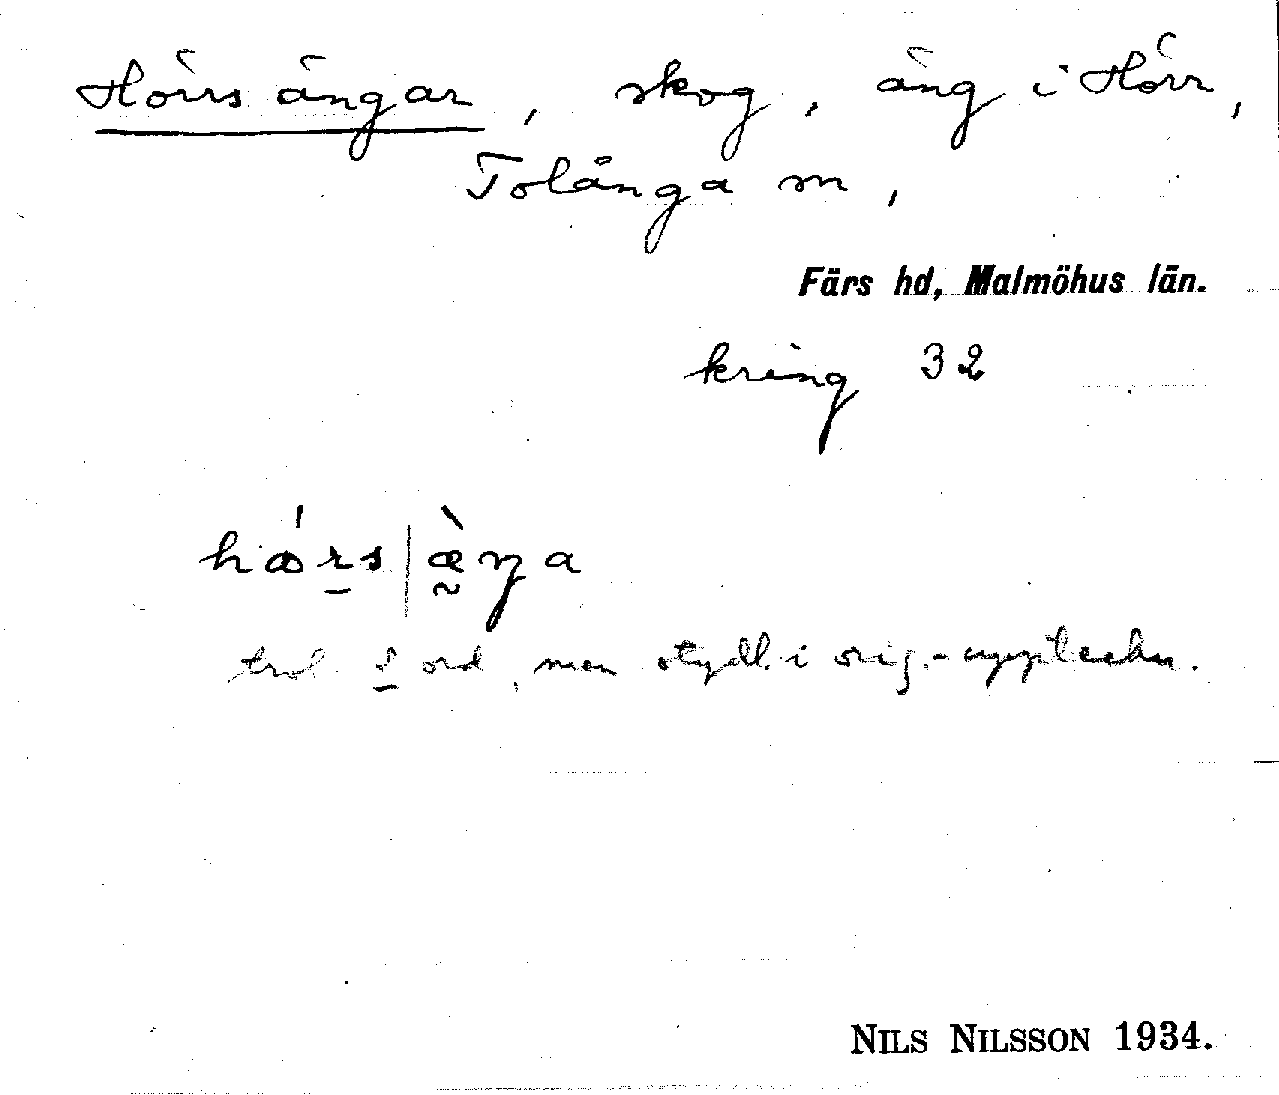 Hörrs ängar, skog, äng i Hörr,
Tolånga sn,
Färs hd, Malmöhus län.
kring 32
hǿrs|æ̀ŋa
trol. 2 ord, men otydl. i orig.-uppteckn.
NILS NILSSON 1934.